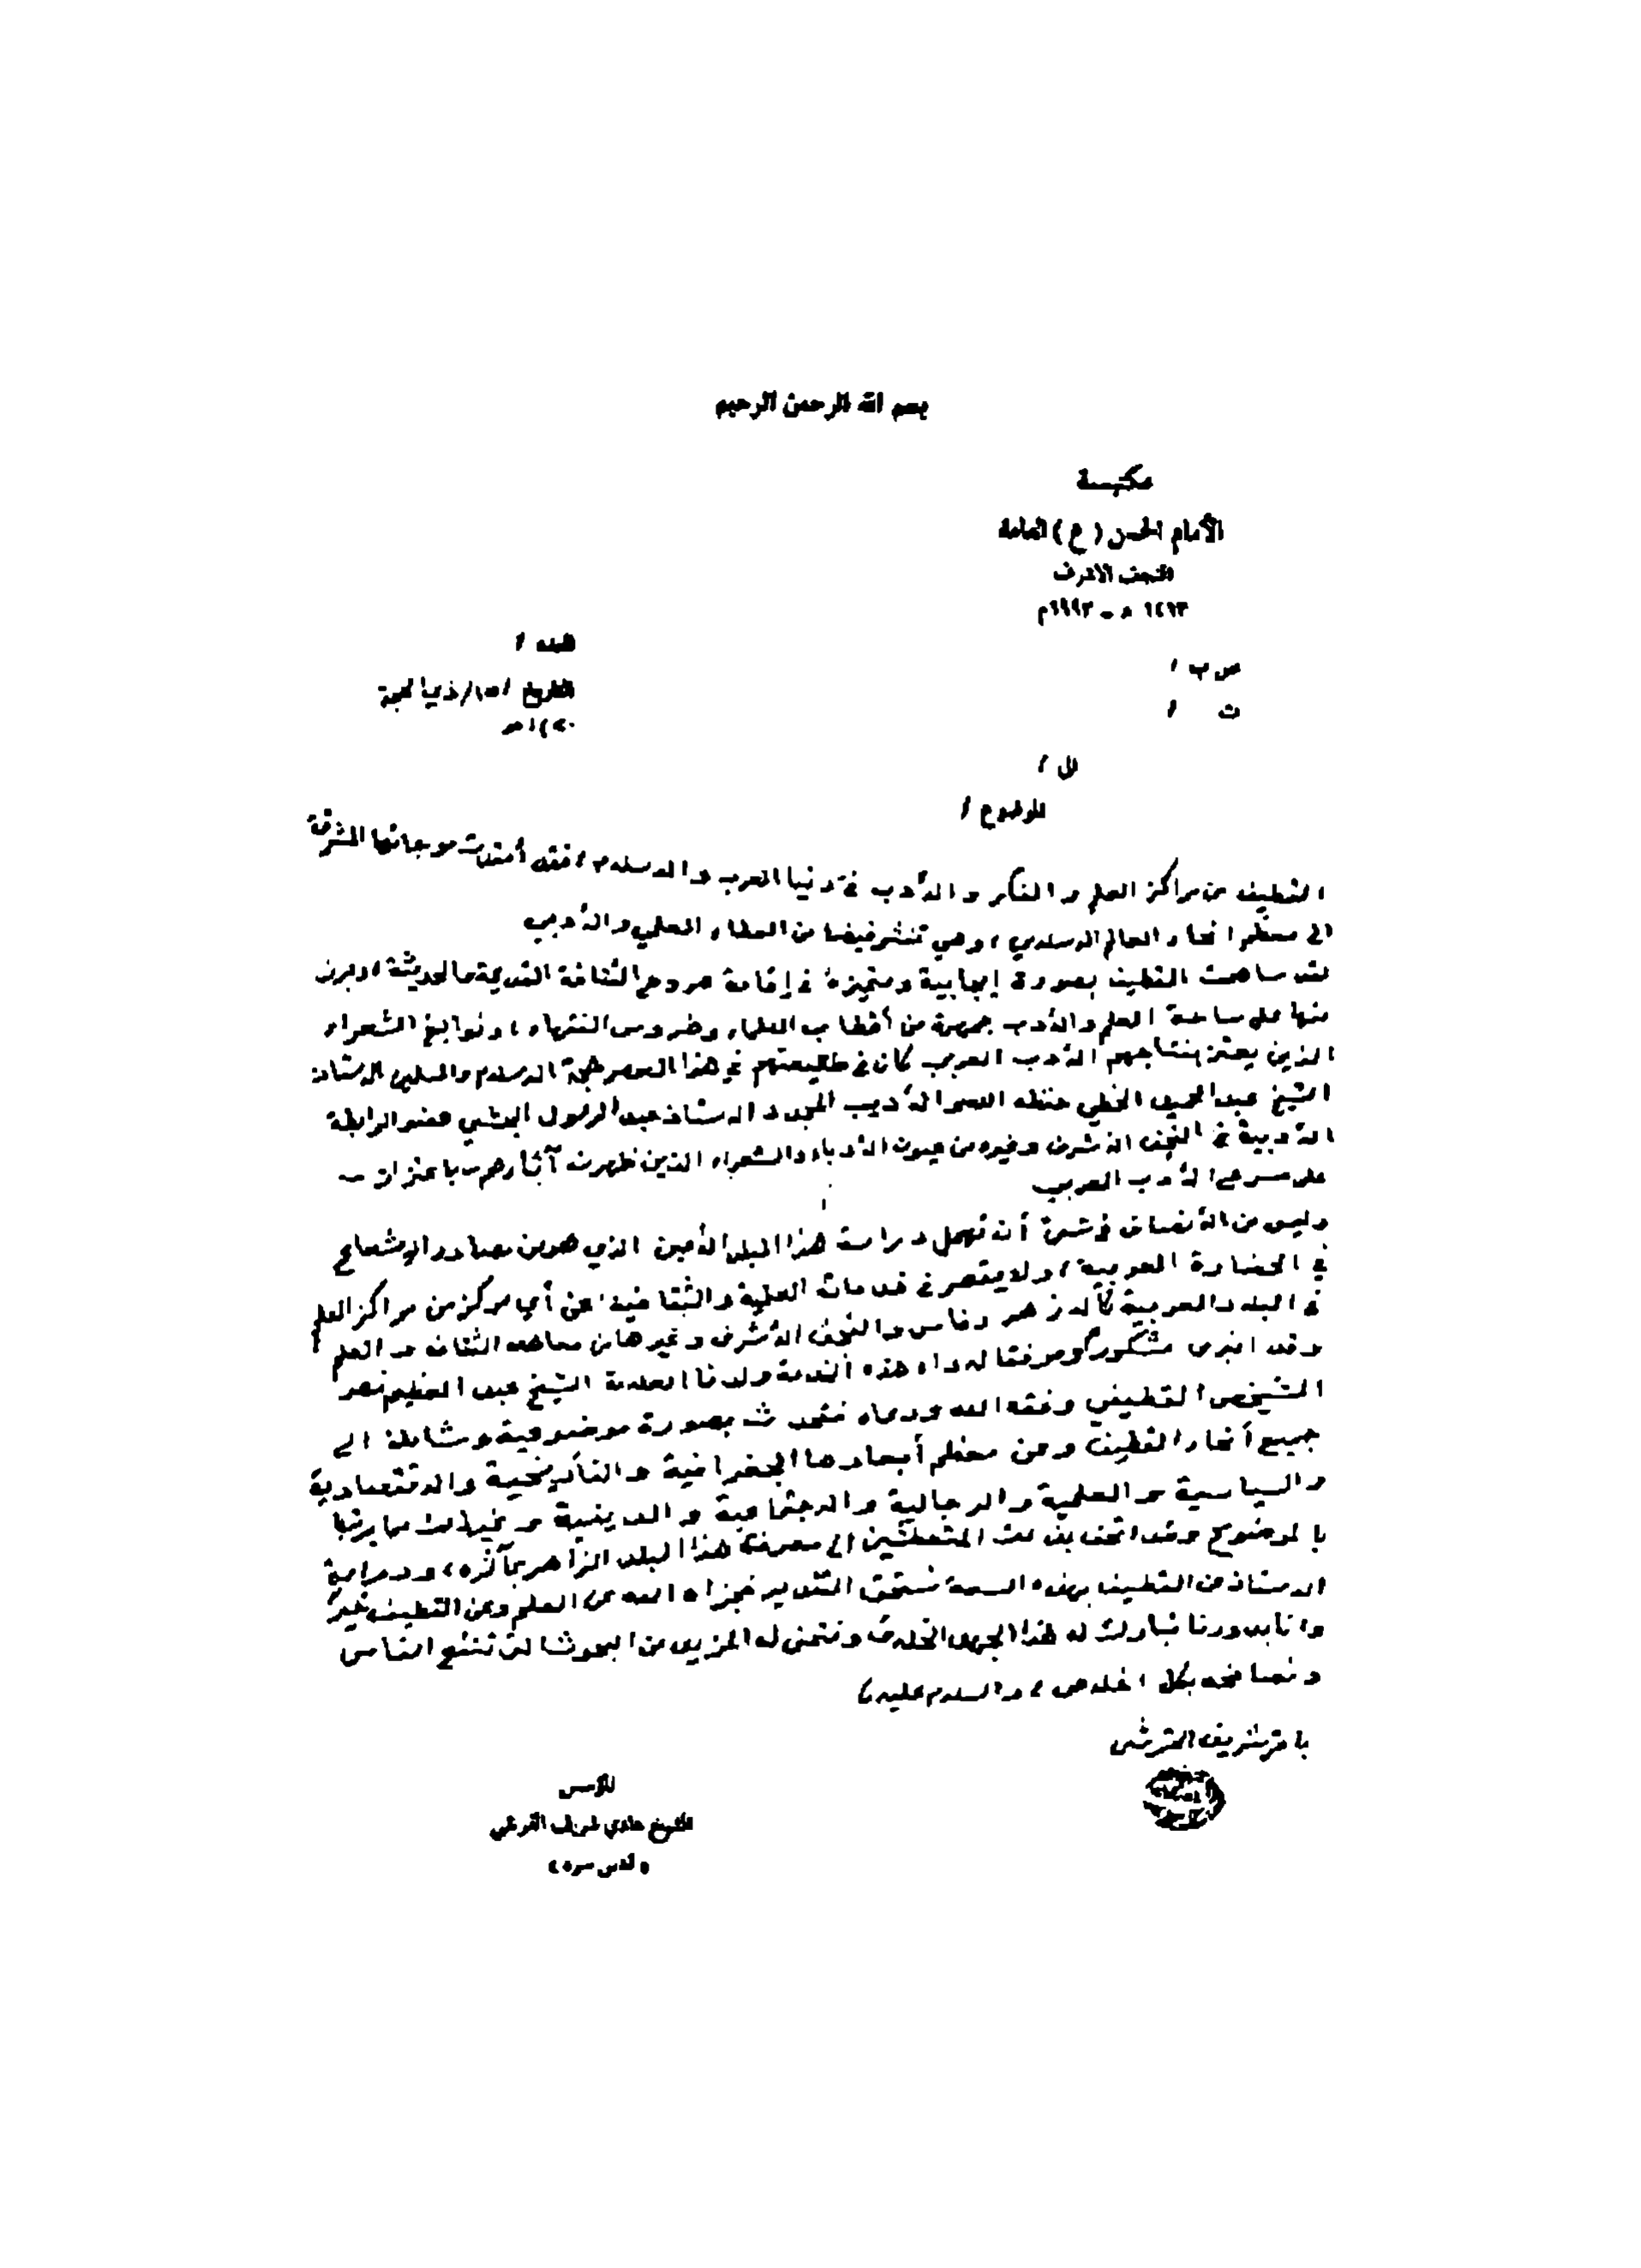 بسم الله الرحمن الرحيم
مكتبة
الأمام الحسن (ع) العامة
النجف الاشرف
١٤١٣ هـ - ١٩٩٢م
العدد /
ص ب /
التاريخ / ١٥/ذي الحجة
ت /
١٤٢٠هـ
الى /
الموضوع /
القطيف من مراكز العلم والفكر والأدب في دنيا العرب والاسلام، فقد أمتدت موجاتها المشرقة
الى معظم انحاء العالم الاسلامي، وهي تنشر فيضا من العطاء العلمي والأدبي
لقد ساهمت القطيف بصورة إيجابية ومتميزة في إقامة صروح الثقافة القديمة والحديثة، وبرزت
منها على ساحة العلم والأدب جمهرة من أقطاب العلماء وضروس الفقهاء، ونوابغ الشعراء
الذين يعتز بنتاجهم الأدب العربي كان في طليعتهم في هذا العصر حجة الاسلام والمسلمين الاستاذ
الشيخ عبد الحميد الخطي حفظه الله والأديب المجدد الاستاذ عبد الرسول الجشي عضو الرابطة
الأدبية في النجف الاشرف وغيره من عيون الأدباء والشعراء الذين ظهرت آثارهم - باعتزاز -
على مسرح الأدب العربي
وليس من الأنصاف في شيء أن تهمل دراسة هذا البلد الأمين الذي هو من مصادر الإشعاع
في الحضارة العربية، ولا يقصر في خدماته العلمية والثقافية عن أي مركز من مراكز العلم
في البلاد العربية كالأزهر وفاس والنجف الأشرف وغيرها من معاهد الثقافة والعلم
وقد انبرى مشكوراً وموفقا لاداء هذه الخدمة ولدنا العلامة الشيخ عبد العظيم نصر
المشيخص القطيفي وفقه الله ورعاه فتحدث بصورة موضوعية وشاملة الى
جميع أنحاء القطيف وعن معظم أبعادها الجغرافية والتأريخية والاقتصادية
والسياسية والعلمية والرجالية والاجتماعية والدينية وغير ذلك مما يرتبط
بالموضوع وقد اتحف بذلك المتعطشين الى معرفة هذا البلد الزاهر بمآثره، ودراسة
الاستاذ عن القطيف بهذه السعة تستحق التقدير فجزاه الله عن العلم وعن القطيف خيرً
وانا بدورنا نبارك له هذا الجهد الخلاق ونتمنى له المزيد من البحوث التي تنفع الناس
ونصافحه بكل اخلاص، والسلام عليه،
باقر شريف القرشي
المؤسس
الشيخ هادي شريف القرشي
(قدس سره)